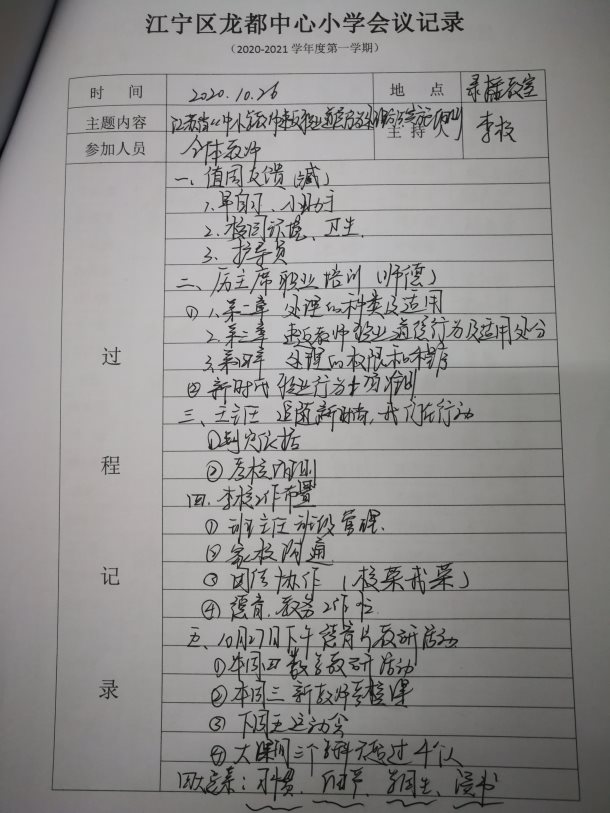 江宁区龙都中心小学会议记录
（2020-2021 学年度第一学期）
时 间 2020.10.26 地 点 录播教室
主题内容 江苏省《中小学教师违反职业道德行为处理 实施 主 持 李校
参加人员 全体教师
过程记录
一、值周反馈（臧）
1.早自习、小助手
2.校园环境、卫生
3.护导员
二、厉主席职业培训（师德）
① 1.第二章 处理的种类及适用
2.第三章 违反教师职业道德行为及适用处分
3.第四章 处理的权限和程序
② 新时代职业行为十项准则
三、王主任 追随新时尚，我们在行动
①
② 考核细则
四、李校工作布置
① 班主任班级管理
② 家校沟通
③ 团结协作（校荣我荣）
④ 德育、教务工作
五、10月27日下午德育片教研活动
① 本周四数学教研活动
② 本周三新教师考核课
③ 下周五运动会
④ 大课间三个 超过4个人
：习惯、